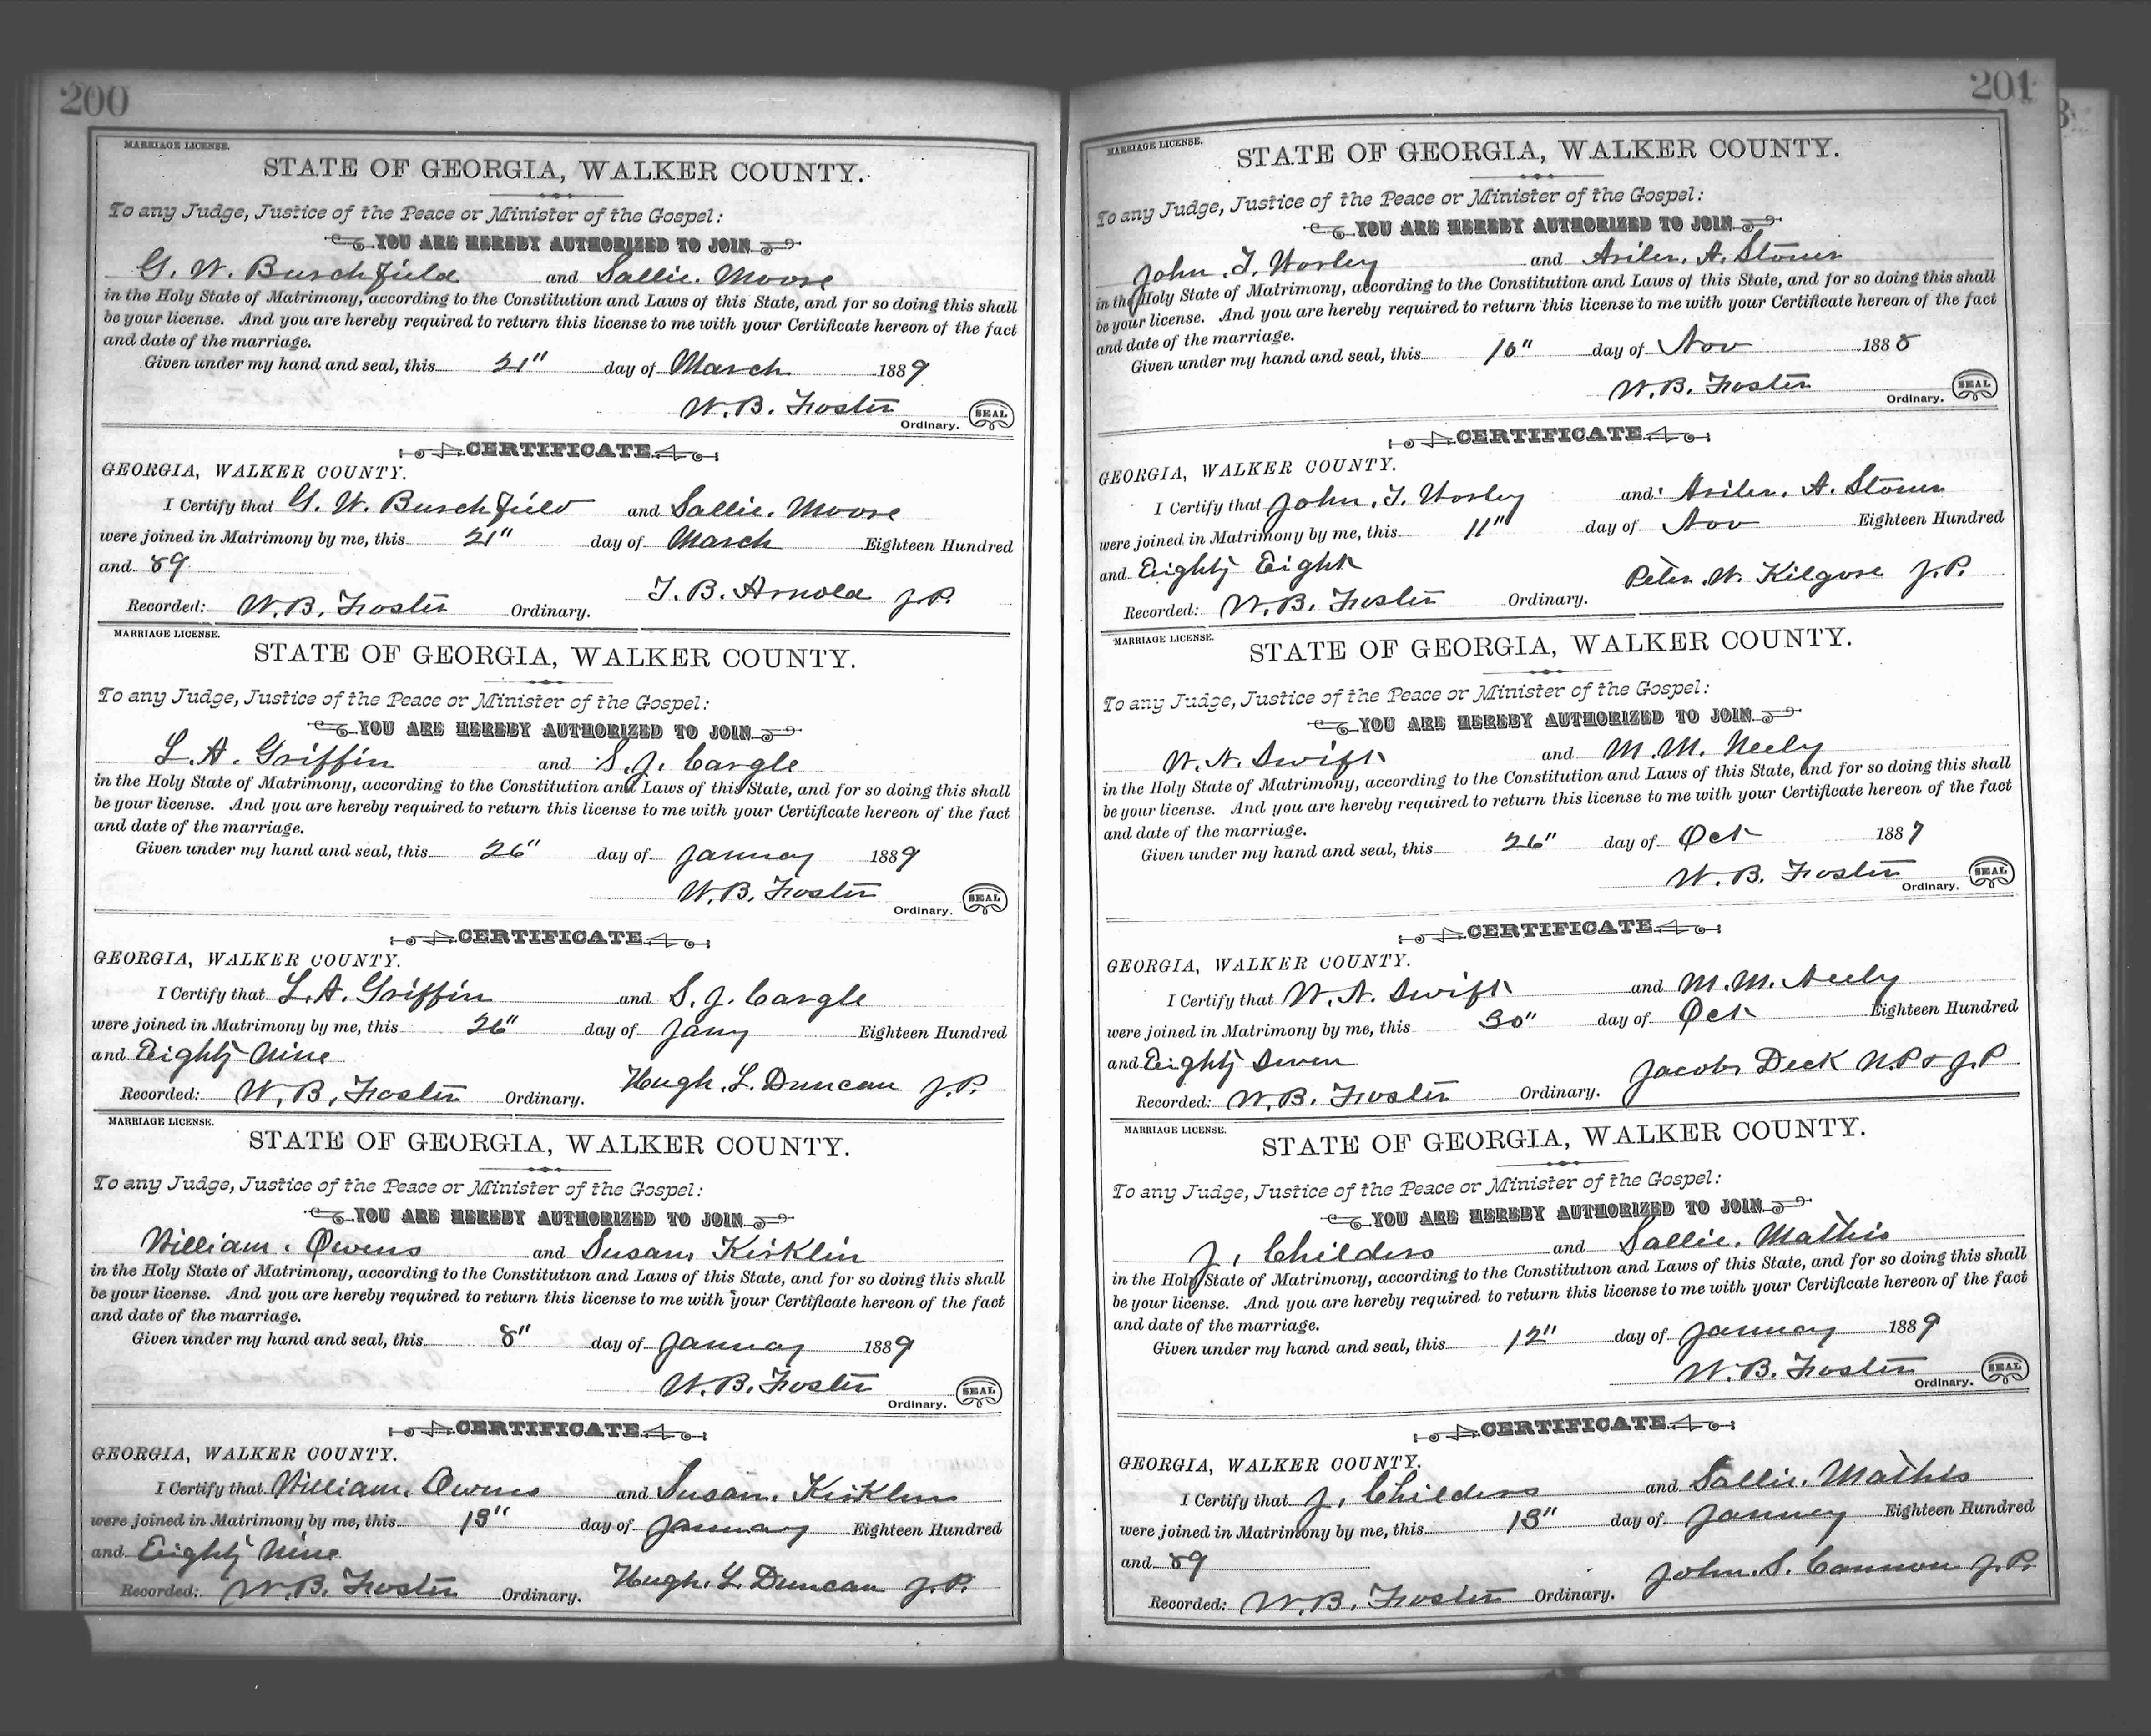 200
MARRIAGE LICENSE.
STATE OF GEORGIA, WALKER COUNTY.
To any Judge, Justice of the Peace or Minister of the Gospel:
YOU ARE HEREBY AUTHORIZED TO JOIN
G. W. Burchfield and Sallie Moore
in the Holy State of Matrimony, according to the Constitution and Laws of this State, and for so doing this shall
be your license. And you are hereby required to return this license to me with your Certificate hereon of the fact
and date of the marriage.
Given under my hand and seal, this 21" day of March 1889
W. B. Foster
Ordinary. SEAL
CERTIFICATE
GEORGIA, WALKER COUNTY.
I Certify that G. W. Burchfield and Sallie Moore
were joined in Matrimony by me, this 21" day of March Eighteen Hundred
and 89
T. B. Arnold J.P.
Recorded: W. B. Foster Ordinary.
MARRIAGE LICENSE.
STATE OF GEORGIA, WALKER COUNTY.
To any Judge, Justice of the Peace or Minister of the Gospel:
YOU ARE HEREBY AUTHORIZED TO JOIN
L. A. Griffin and S. J. Cargle
in the Holy State of Matrimony, according to the Constitution and Laws of this State, and for so doing this shall
be your license. And you are hereby required to return this license to me with your Certificate hereon of the fact
and date of the marriage.
Given under my hand and seal, this 26" day of January 1889
W. B. Foster
Ordinary. SEAL
CERTIFICATE
GEORGIA, WALKER COUNTY.
I Certify that L. A. Griffin and S. J. Cargle
were joined in Matrimony by me, this 26" day of Jany Eighteen Hundred
and Eighty Nine
Hugh. L. Duncan J.P.
Recorded: W. B. Foster Ordinary.
MARRIAGE LICENSE.
STATE OF GEORGIA, WALKER COUNTY.
To any Judge, Justice of the Peace or Minister of the Gospel:
YOU ARE HEREBY AUTHORIZED TO JOIN
William Owens and Susan Kirklin
in the Holy State of Matrimony, according to the Constitution and Laws of this State, and for so doing this shall
be your license. And you are hereby required to return this license to me with your Certificate hereon of the fact
and date of the marriage.
Given under my hand and seal, this 8" day of January 1889
W. B. Foster
Ordinary. SEAL
CERTIFICATE
GEORGIA, WALKER COUNTY.
I Certify that William Owens and Susan Kirklin
were joined in Matrimony by me, this 13" day of January Eighteen Hundred
and Eighty Nine
Hugh. L. Duncan J.P.
Recorded: W. B. Foster Ordinary.
201
MARRIAGE LICENSE.
STATE OF GEORGIA, WALKER COUNTY.
To any Judge, Justice of the Peace or Minister of the Gospel:
YOU ARE HEREBY AUTHORIZED TO JOIN
John. T. Worley and A. Stoner
in the Holy State of Matrimony, according to the Constitution and Laws of this State, and for so doing this shall
be your license. And you are hereby required to return this license to me with your Certificate hereon of the fact
and date of the marriage.
Given under my hand and seal, this 10" day of Nov 1888
W. B. Foster
Ordinary. SEAL
CERTIFICATE
GEORGIA, WALKER COUNTY.
I Certify that John. T. Worley and A. Stoner
were joined in Matrimony by me, this 11" day of Nov Eighteen Hundred
and Eighty Eight
Peter. W. Kilgore J.P.
Recorded: W. B. Foster Ordinary.
MARRIAGE LICENSE.
STATE OF GEORGIA, WALKER COUNTY.
To any Judge, Justice of the Peace or Minister of the Gospel:
YOU ARE HEREBY AUTHORIZED TO JOIN
W. N. Swift and M. M. Neely
in the Holy State of Matrimony, according to the Constitution and Laws of this State, and for so doing this shall
be your license. And you are hereby required to return this license to me with your Certificate hereon of the fact
and date of the marriage.
Given under my hand and seal, this 26" day of Oct 1887
W. B. Foster
Ordinary. SEAL
CERTIFICATE
GEORGIA, WALKER COUNTY.
I Certify that W. N. Swift and M. M. Neely
were joined in Matrimony by me, this 30" day of Oct Eighteen Hundred
and Eighty Seven
Jacob Deck N.P. & J.P
Recorded: W. B. Foster Ordinary.
MARRIAGE LICENSE.
STATE OF GEORGIA, WALKER COUNTY.
To any Judge, Justice of the Peace or Minister of the Gospel:
YOU ARE HEREBY AUTHORIZED TO JOIN
J. Childers and Sallie Mathis
in the Holy State of Matrimony, according to the Constitution and Laws of this State, and for so doing this shall
be your license. And you are hereby required to return this license to me with your Certificate hereon of the fact
and date of the marriage.
Given under my hand and seal, this 12" day of January 1889
W. B. Foster
Ordinary. SEAL
CERTIFICATE
GEORGIA, WALKER COUNTY.
I Certify that J. Childers and Sallie Mathis
were joined in Matrimony by me, this 13" day of January Eighteen Hundred
and 89
John. S. Cannon J.P.
Recorded: W. B. Foster Ordinary.